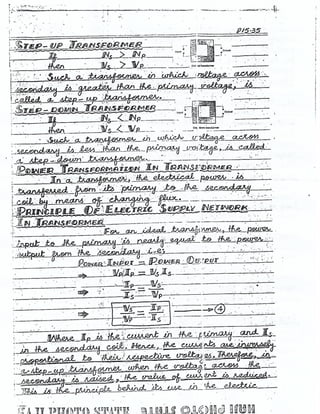 P15-35
STEP-UP TRANSFORMER
If Ns > Np
then Vs > Vp
Such a transformer in which voltage across
secondary is greater than the primary voltage, is
called a step-up transformer.
STEP-DOWN TRANSFORMER
If Ns < Np
then Vs < Vp
Such a transformer in which voltage across
secondary is less than the primary voltage, is called
a step-down transformer.
POWER TRANSFORMATION IN TRANSFORMER
In a transformer, the electrical power is
transferred from its primary to the secondary
coil by means of changing flux.
PRINCIPLE OF ELECTRIC SUPPLY NETWORK
IN TRANSFORMER
For an ideal transformer, the power
input to the primary is nearly equal to the power
output from the secondary i.e;
POWER INPUT = POWER OUTPUT
⇒ VpIp = VsIs
⇒ Ip/Is = Vs/Vp
⇒ Vs/Vp = Ip/Is → ④
Where Ip is the current in the primary and Is
in the secondary coil. Hence, the currents are inversely
proportional to their respective voltages. Therefore, in
a step-up transformer when the voltage across the
secondary is raised, the value of current is reduced.
This is the principle behind its use in the electric
PHOTO STATE